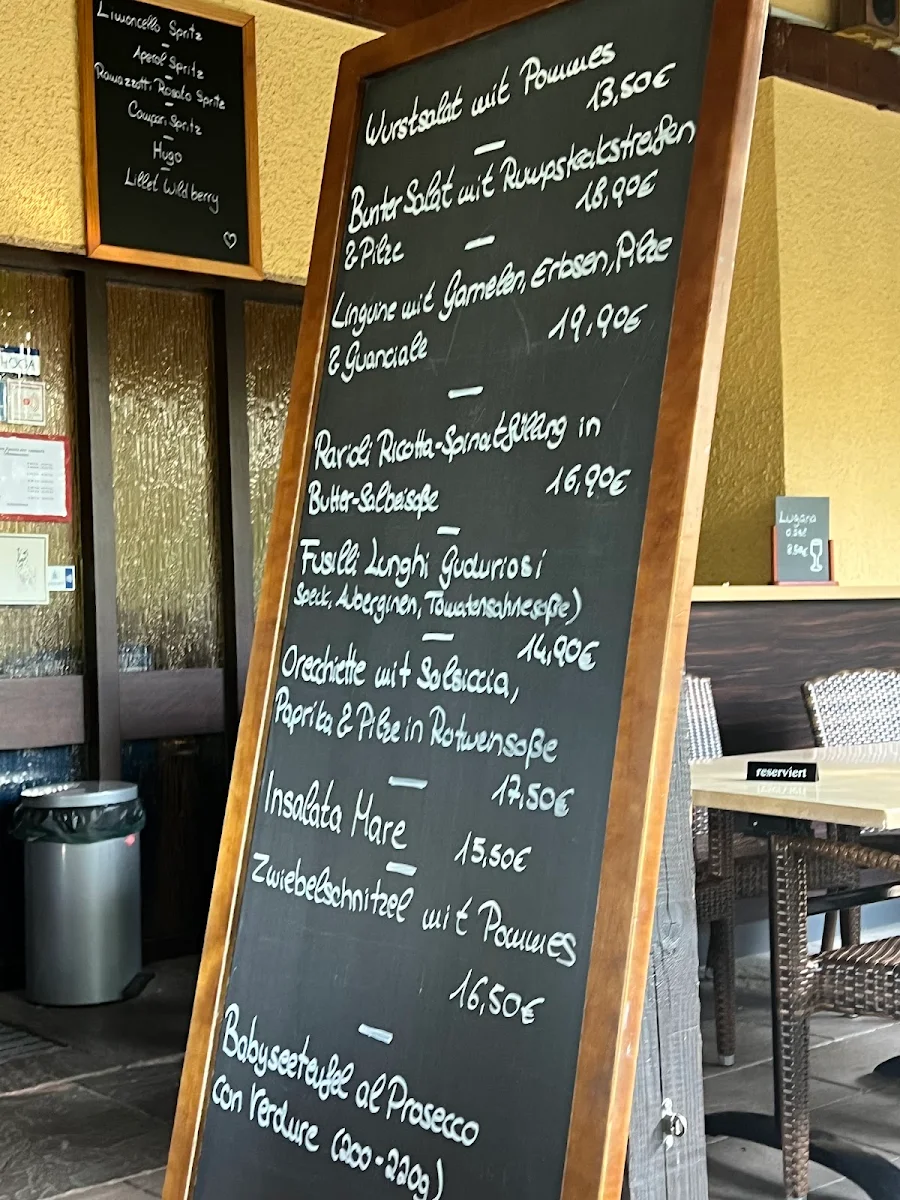 Limoncello Spritz
Aperol Spritz
Ramazzotti Rosato Spritz
Campari Spritz
Hugo
Lillet Wildberry
Wurstsalat mit Pommes
13,50€
Bunter Salat mit Rumpsteakstreifen
& Pilze
18,90€
Linguine mit Garnelen, Erbsen, Pilze
& Guanciale
19,90€
Ravioli Ricotta-Spinatfüllung in
Butter-Salbeisoße
16,90€
Fusilli Lunghi Guduriosi
Speck, Auberginen, Tomatensahnesoße)
14,90€
Orecchiette mit Salsiccia,
Paprika & Pilze in Rotweinsoße
17,50€
Insalata Mare
15,50€
Zwiebelschnitzel mit Pommes
16,50€
Babyseeteufel al Prosecco
con Verdure (200-220g)
Lugana
reserviert